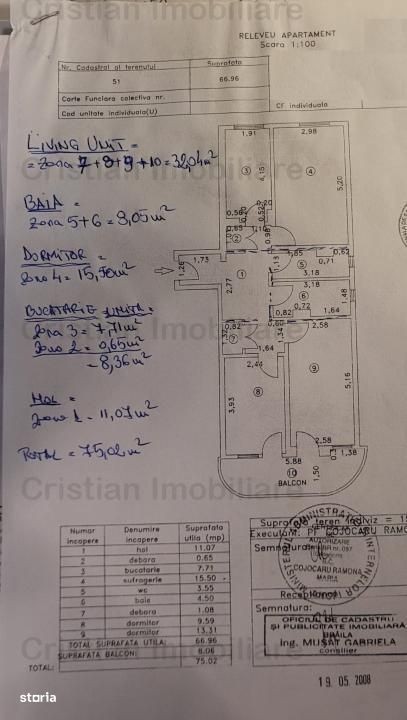 Cristian Imobiliare
RELEVEU APARTAMENT
Scara 1:100
Nr. Cadastral al terenului
Suprafata
51
66.96
Carte Funciara colectiva nr.
Cad unitate individuala(U)
CF individuala
LIVING UNIT =
= zona 7+8+9+10 = 32,04 m²
BAIA =
zona 5+6 = 8,05 m²
DORMITOR =
zona 4 = 15,50 m²
BUCATARIE UNITA =
zona 3 = 7,71 m²
zona 2 = 0,65 m²
= 8,36 m²
HOL =
zona 1 = 11,07 m²
TOTAL = 75,02 m²
1,91
2,98
3
4,15
4
5,20
2,20
0,56
0,52
0,65
1,10
0,98
2
1,73
1,26
1
2,77
1,13
1,85
0,62
0,71
5
3,18
3,18
6
1,48
0,72
0,82
1,64
0,82
7
1,64
2,58
2,44
3,93
8
9
5,16
2,58
5,88
1,38
10
1,50
BALCON
Cristian Imobiliare
Cristian Imobiliare
Cristian Imobiliare
Numar incapere
Denumire incapere
Suprafata utila (mp)
1 hol 11.07
2 debara 0.65
3 bucatarie 7.71
4 sufragerie 15.50
5 wc 3.55
6 baie 4.50
7 debara 1.08
8 dormitor 9.59
9 dormitor 13.31
TOTAL SUPRAFATA UTILA: 66.96
SUPRAFATA BALCON: 8.06
TOTAL: 75.02
Suprafata teren indiviz = 15
Executant: PF COJOCARU RAMO
Semnatura:
AUTORIZARE
COJOCARU RAMONA
MARIA
Receptionat
Semnatura:
OFICIUL DE CADASTRU
ȘI PUBLICITATE IMOBILIARĂ
BRĂILA
Ing. MUȘAT GABRIELA
CONSILIER
19. 05. 2008
Cristian Imobiliare
storia